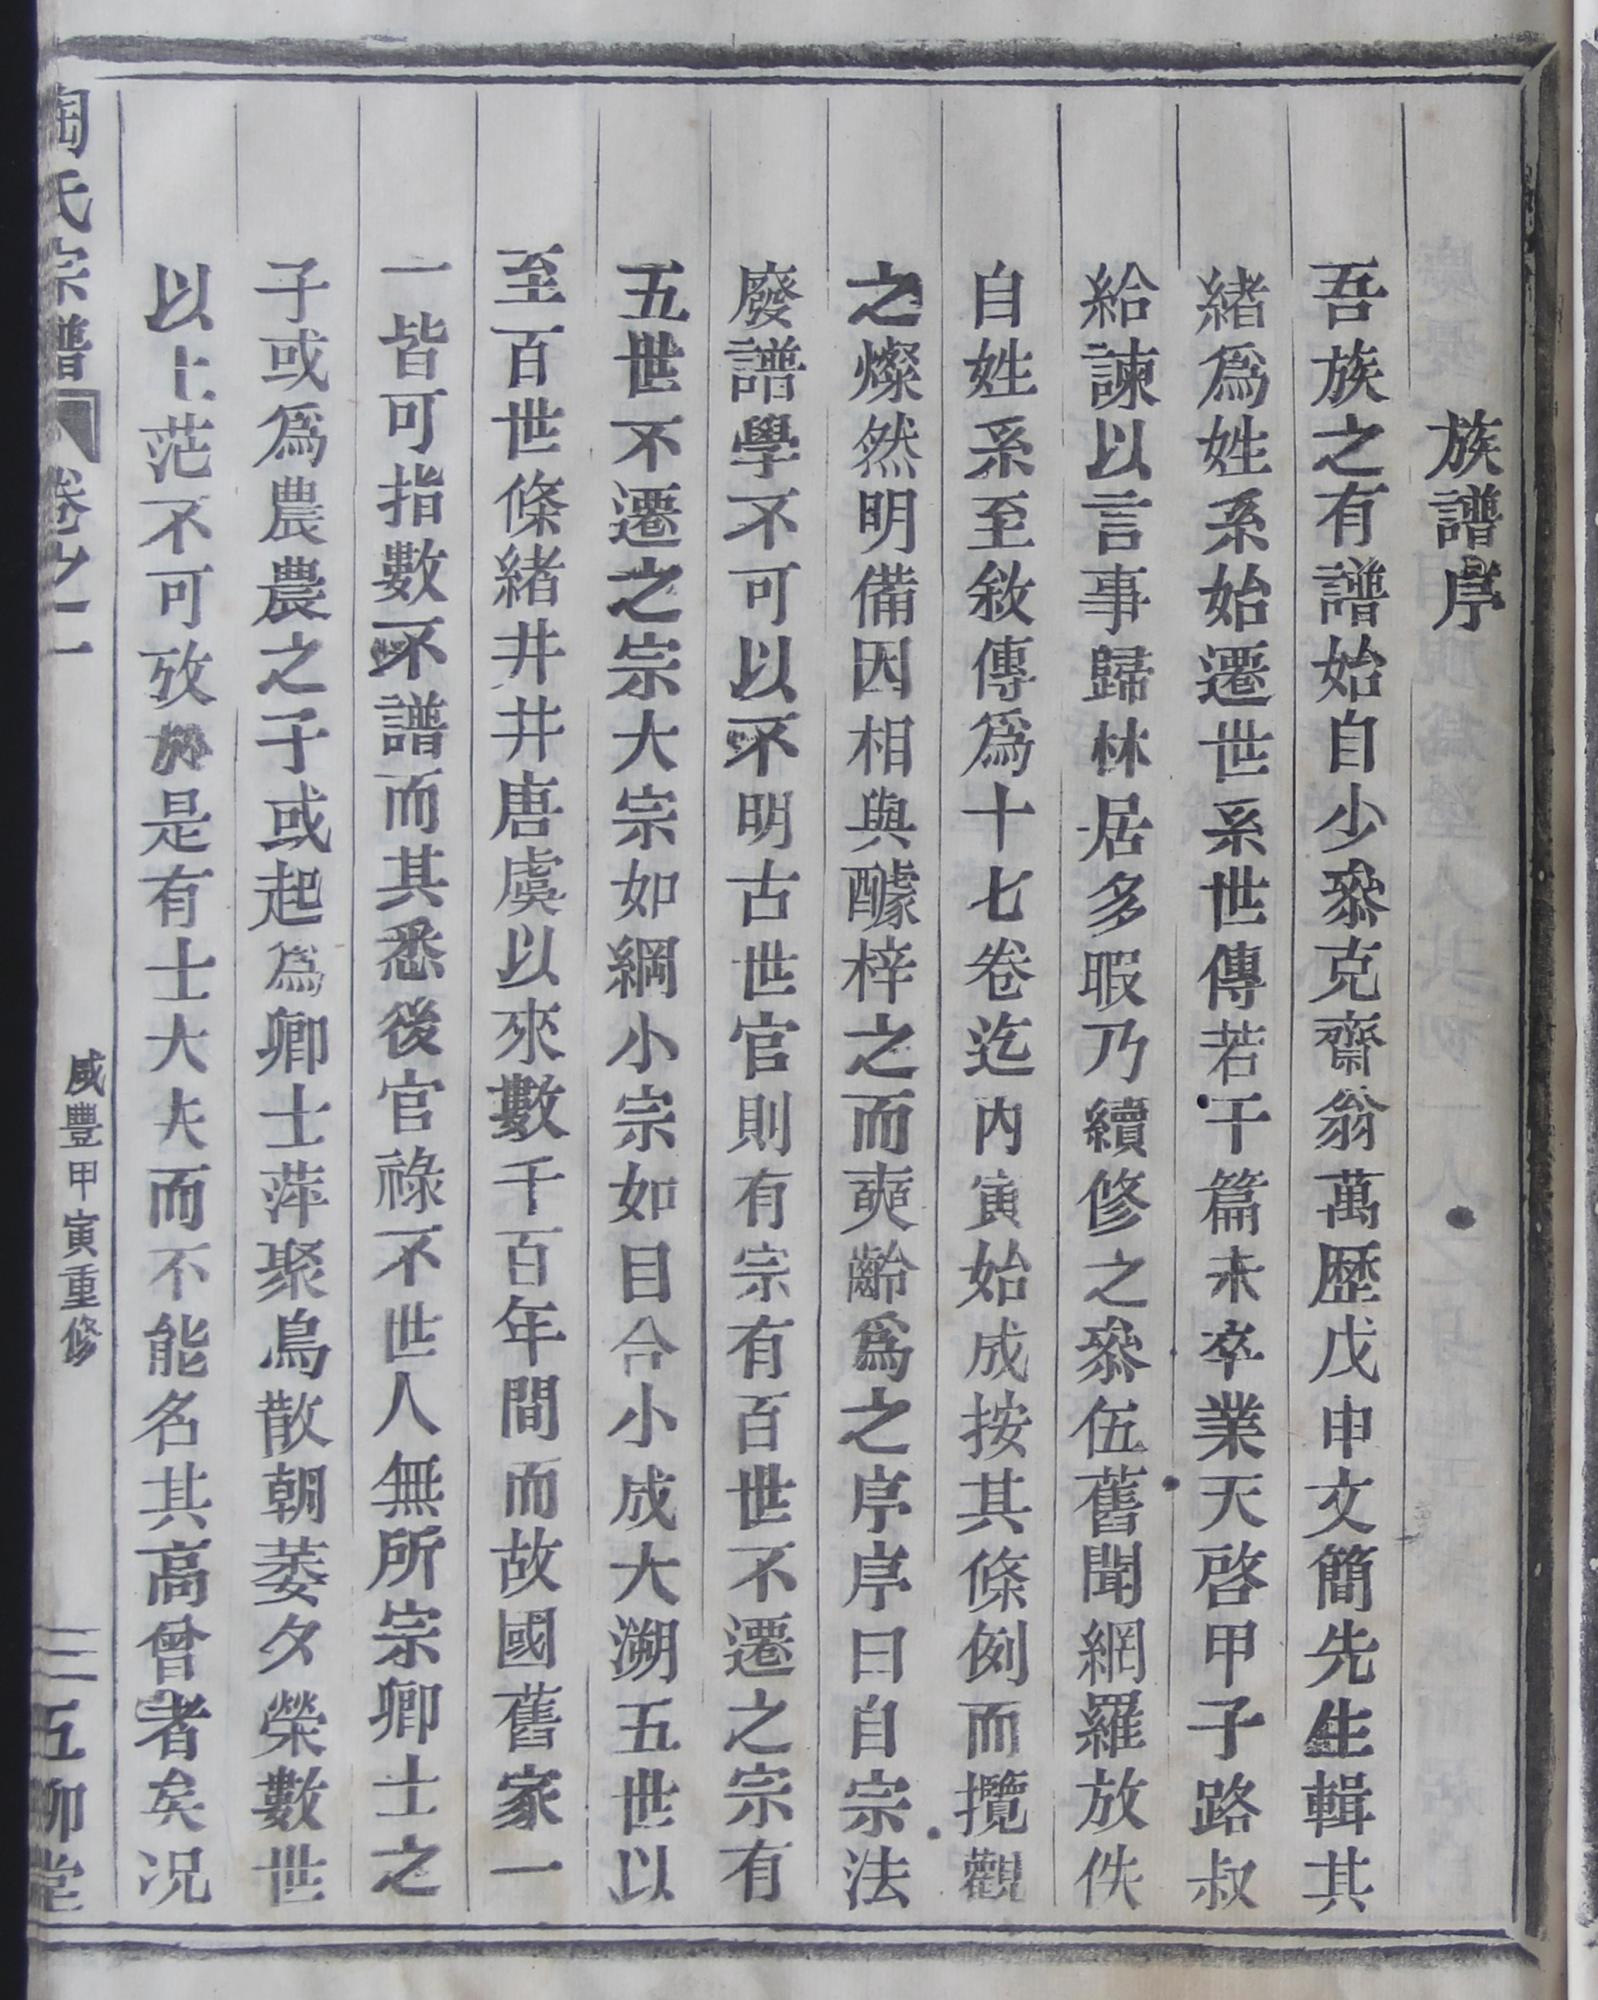 族譜序
吾族之有譜始自少叅克齋翁萬歷戊申文簡先生輯其
緒爲姓系始遷世系世傳若干篇未卒業天啓甲子路叔
給諫以言事歸林居多暇乃續修之叅伍舊聞網羅放佚
自姓系至敘傳爲十七卷迄丙寅始成按其條例而攬觀
之燦然明備因相與醵梓之而奭齡爲之序序曰自宗法
廢譜學不可以不明古世官則有宗有百世不遷之宗有
五世不遷之宗大宗如綱小宗如目合小成大溯五世以
至百世條緒井井唐虞以來數千百年間而故國舊家一
一皆可指數不譜而其悉後官祿不世人無所宗卿士之
子或爲農農之子或起爲卿士萍聚鳥散朝萎夕榮數世
以上茫不可攷於是有士大夫而不能名其高曾者矣况
陶氏宗譜 卷之一 咸豐甲寅重修 三 五柳堂